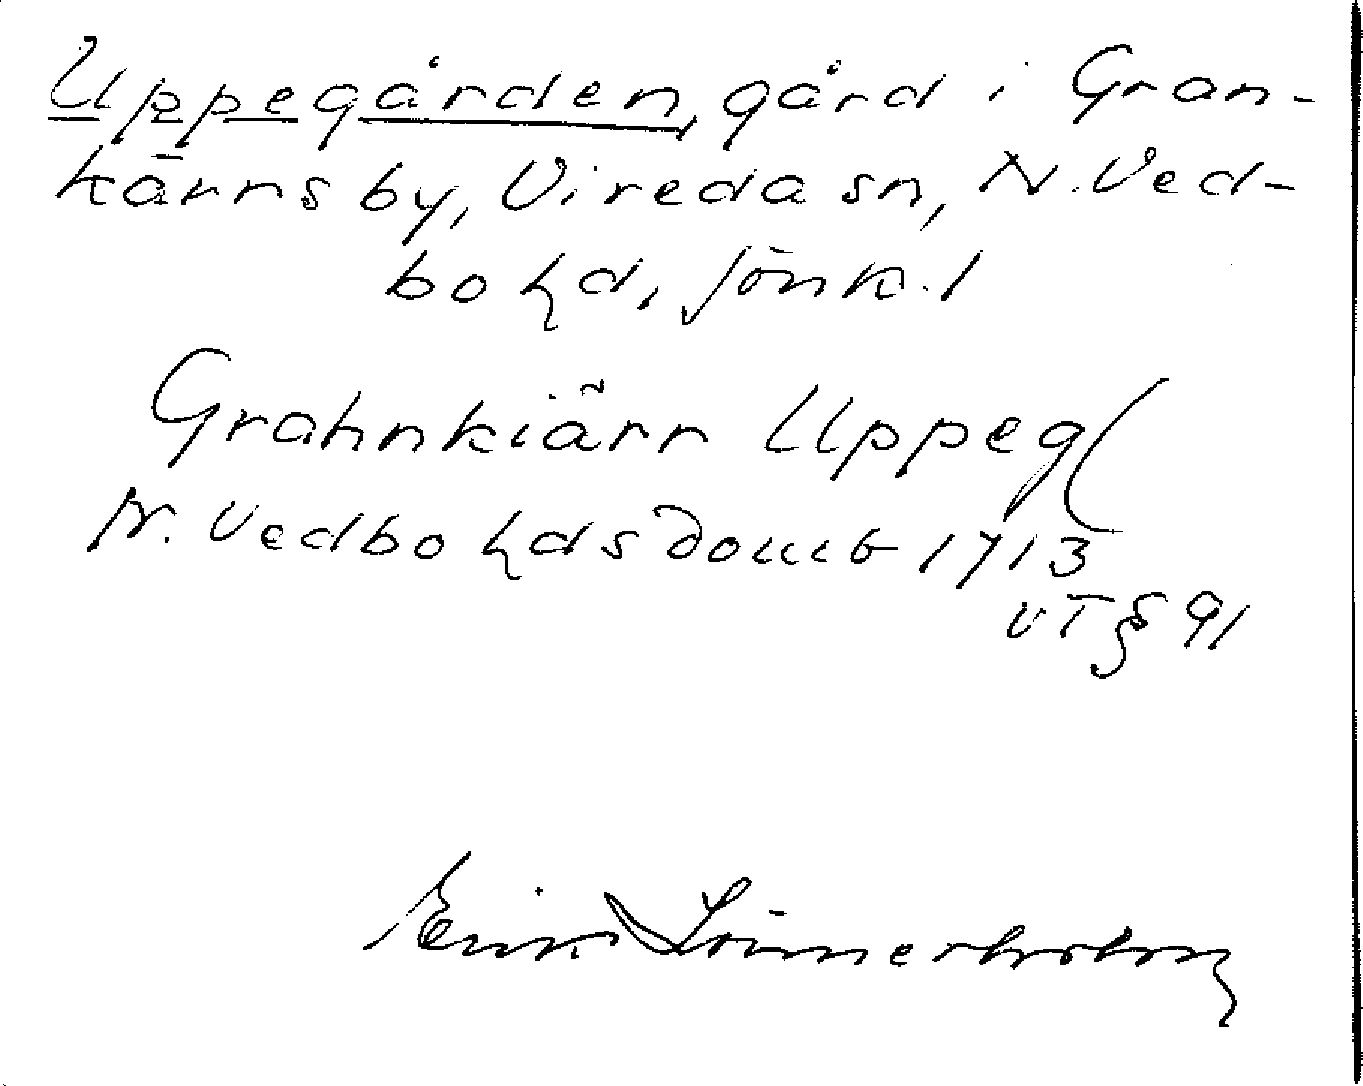 Uppegården, gård i Gran-
kärns by, Vireda sn, N. Ved-
bo hd, Jönk. l
Grahnkiärr Uppeg(
N. Vedbo hds domb 1713
vT § 91
Erik Lönnerholm